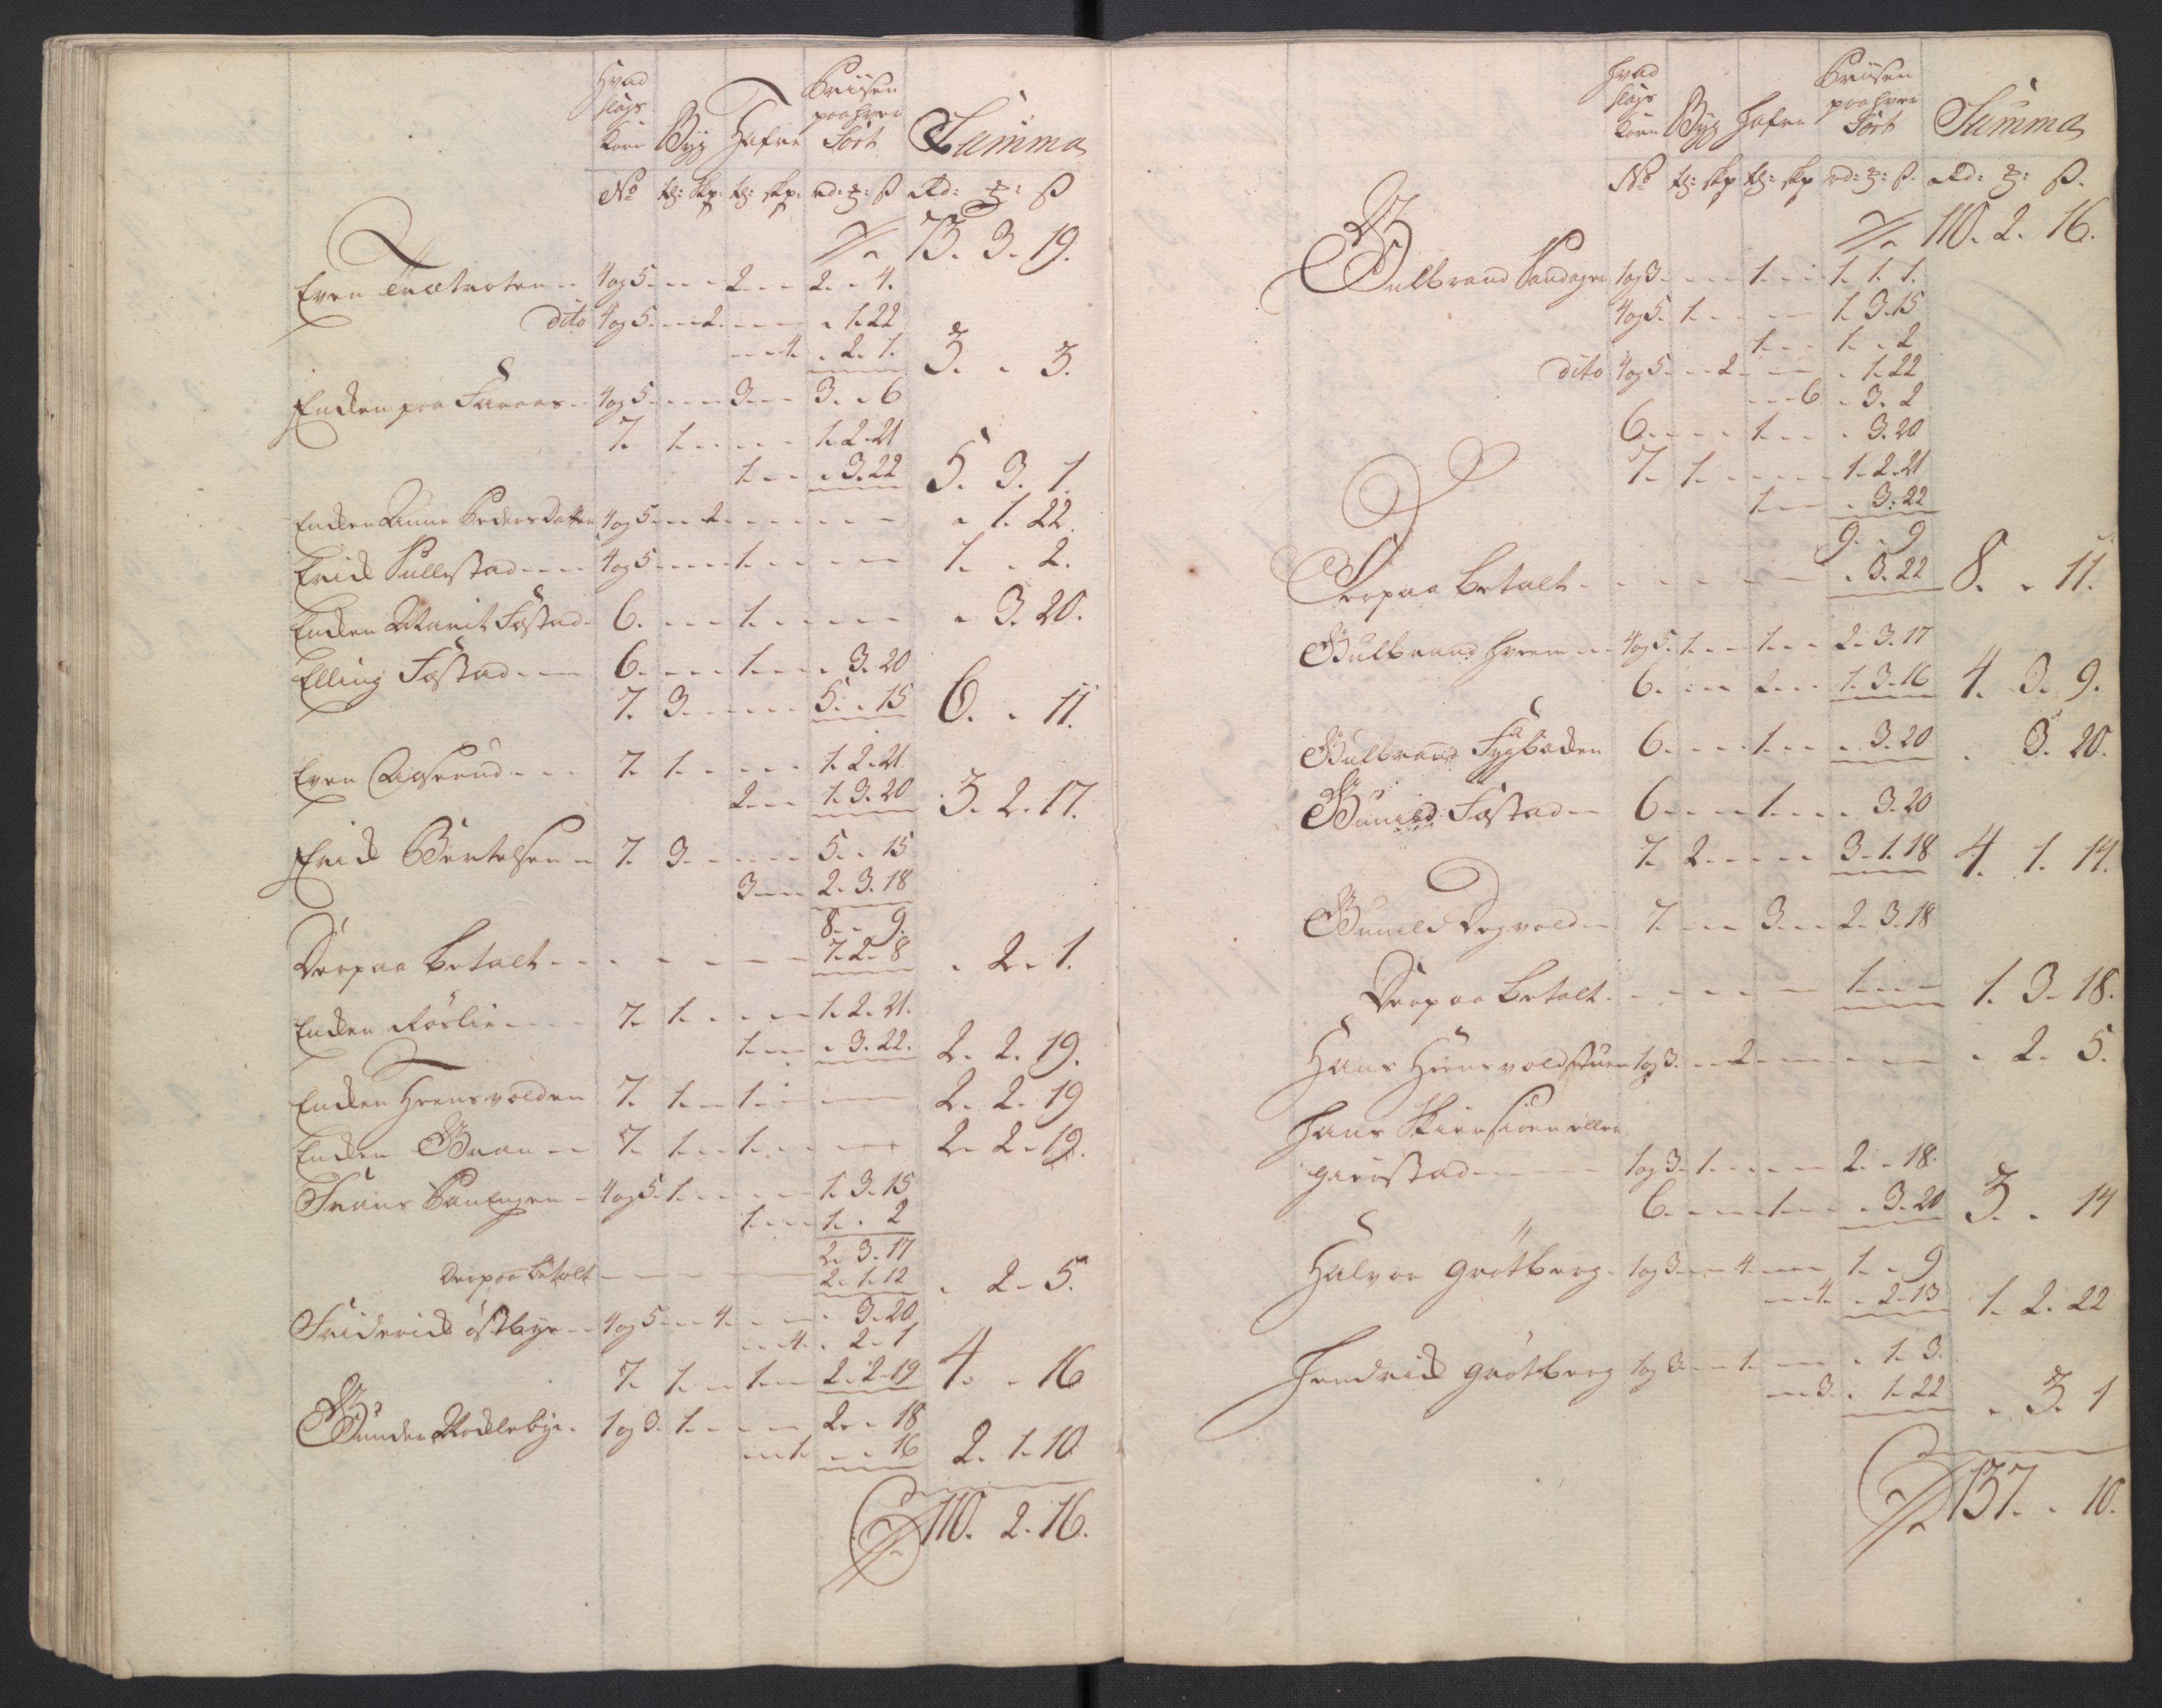 Hvad
slags
Korn Byg Hafre Priisen
paa hver
Sort Summa
No tð: skp: tð: skp: rd: ꝛ: ß Rd: ꝛ: ß
73. 3. 19.
Even Trætroten 4 og 5. - - - 2. - - 2. - 4.
dito 4 og 5. - - 2. - - - - 1. 22
- - - 4. - 2. 1. 3. - 3.
Encken paa Faraas 4 og 5. - - - 3. - - 3. - 6
7. 1. - - - - 1. 2. 21
1. - - - 3. 22 5. 3. 1.
Encken Anne Pedersdatter 4 og 5. - - 2. - - - - - - 1. 22.
Erick Sullestad 4 og 5. - - - 1. - - - - 1. - 2.
Encken Marit Fostad 6. - - - 1. - - - - - 3. 20.
Elling Fostad 6. - - - 1. - - - 3. 20
7. 3. - - - - 5. - 15 6. - 11.
Even 7. 1. - - - - 1. 2. 21
2. - - 1. 3. 20 3. 2. 17.
Erick Bertelsen 7. 3. - - - - 5. - 15
3. - - 2. 3. 18
8. - 9.
Derpaa betalt - - - - - - 7. 2. 8 - 2. 1.
Encken Röslie 7. 1. - - - - 1. 2. 21.
1. - - - 3. 22. 2. 2. 19.
Encken Hrensvolden 7. 1. - 1. - - - 2. 2. 19
Encken Gran 7. 1. - 1. - - - 2. 2. 19.
Frans Sanengen 4 og 5. 1. - - - - 1. 3. 15
1. - - 1. - 2
2. 3. 17
Derpaa betalt - - - - 2. 1. 12 - 2. 5.
Friderick östbye 4 og 5. - - 4. - - - - 3. 20
- - 4. - 2. 1
7. 1. - 1. - 2. 2. 19 4. - 16
Gunder Mocklebye 1 og 3. 1. - - - - 2. - 18
- - 1. - - 16 2. 1. 10
110. 2. 16.
Hvad
slags
Korn Byg Hafre Priisen
paa hver
Sort Summa
No tð: skp tð: skp rd: ꝛ: ß. Rd: ꝛ: ß.
110. 2. 16.
Gulbrand Sandager 1 og 3. - - - 1. - - 1. 1. 1.
4 og 5. 1. - - - - 1. 3. 15
1. - - 1. - 2
dito 4 og 5. - - 2. - - - - 1. 22
- - 6 - 3. 2
6. - - - 1. - - - 3. 20
7. 1. - - - - 1. 2. 21
1. - - - 3. 22
9. - 9
Derpaa betalt - - - - - - - 3. 22 8. - 11.
Gulbrand Hvem 4 og 5. 1. - - 1. - - 2. 3. 17
6. - - - 2. - - 1. 3. 16 4. 3. 9.
Gulbrand 6. - - - 1. - - - 3. 20 - 3. 20.
Gunild Fostad 6. - - - 1. - - - 3. 20
7. 2. - - - - 3. 1. 18 4. 1. 14.
Gunild Dogvold 7. - - - 3. - - 2. 3. 18
Derpaa betalt - - - - - 1. - - 1. 3. 18.
Hans Hrensvoldstuen 1 og 3. - - 2. - - - - - 2. 5.
Hans eller
gierstad 1 og 3. 1. - - - - 2. - 18.
6. - - - 1. - - - 3. 20 3. - 14
Halvor Grötberg 1 og 3. - - 4. - - 1. - 9
- - 4. - 2. 13 1. 2. 22
Hendrick Grötberg 1 og 3. - - 1. - - - 1. 3.
- - 3. - 1. 22 - 3. 1
137. - 10.